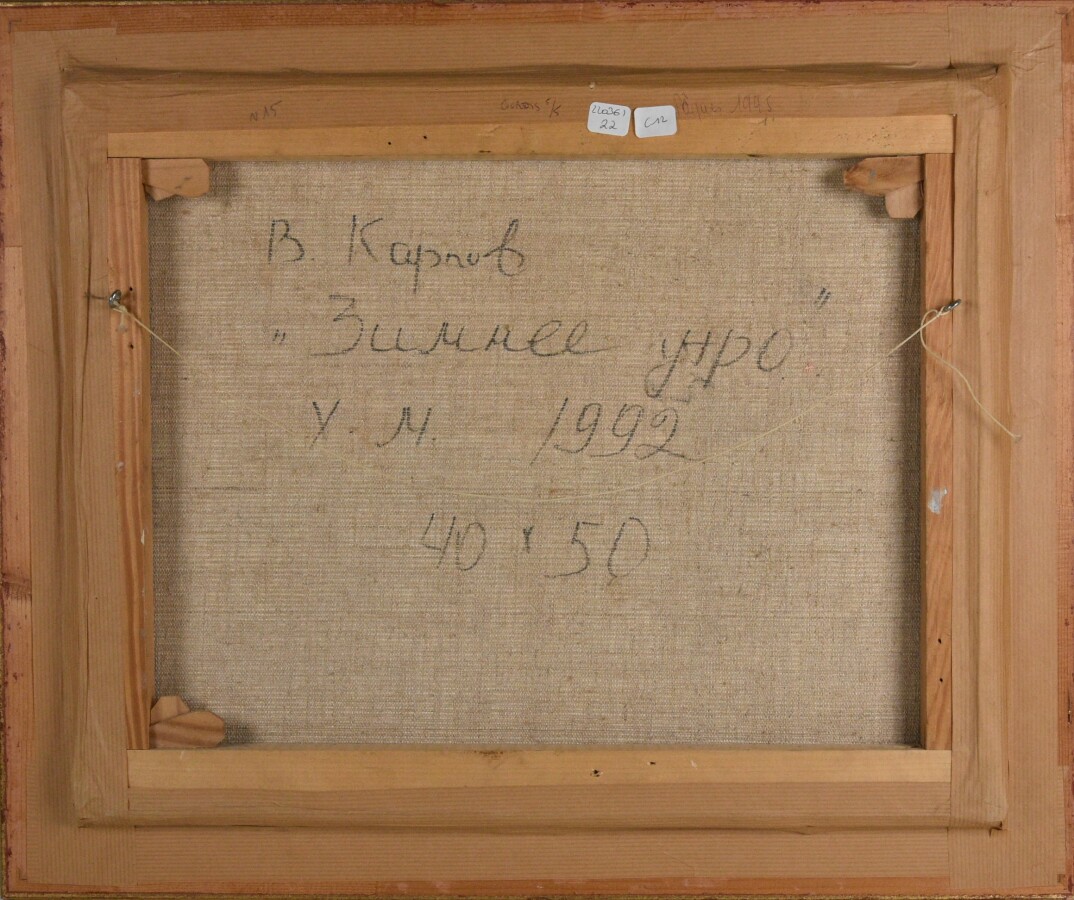 N15 1995
22
C12
В. Карпов
„Зимнее утро"
х. м. 1992
40 х 50